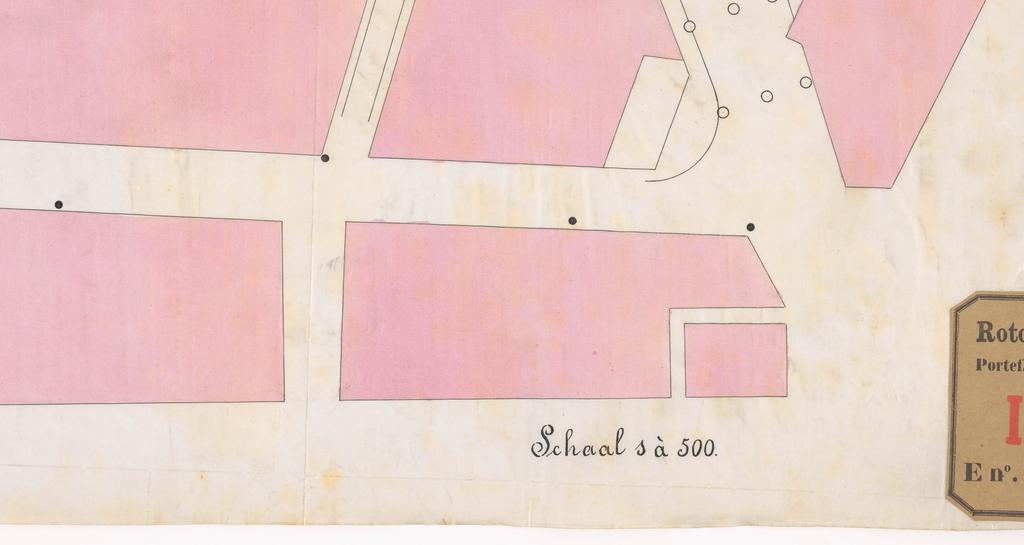 Schaal s à 500.
Roto
Portef.
I
E nº.